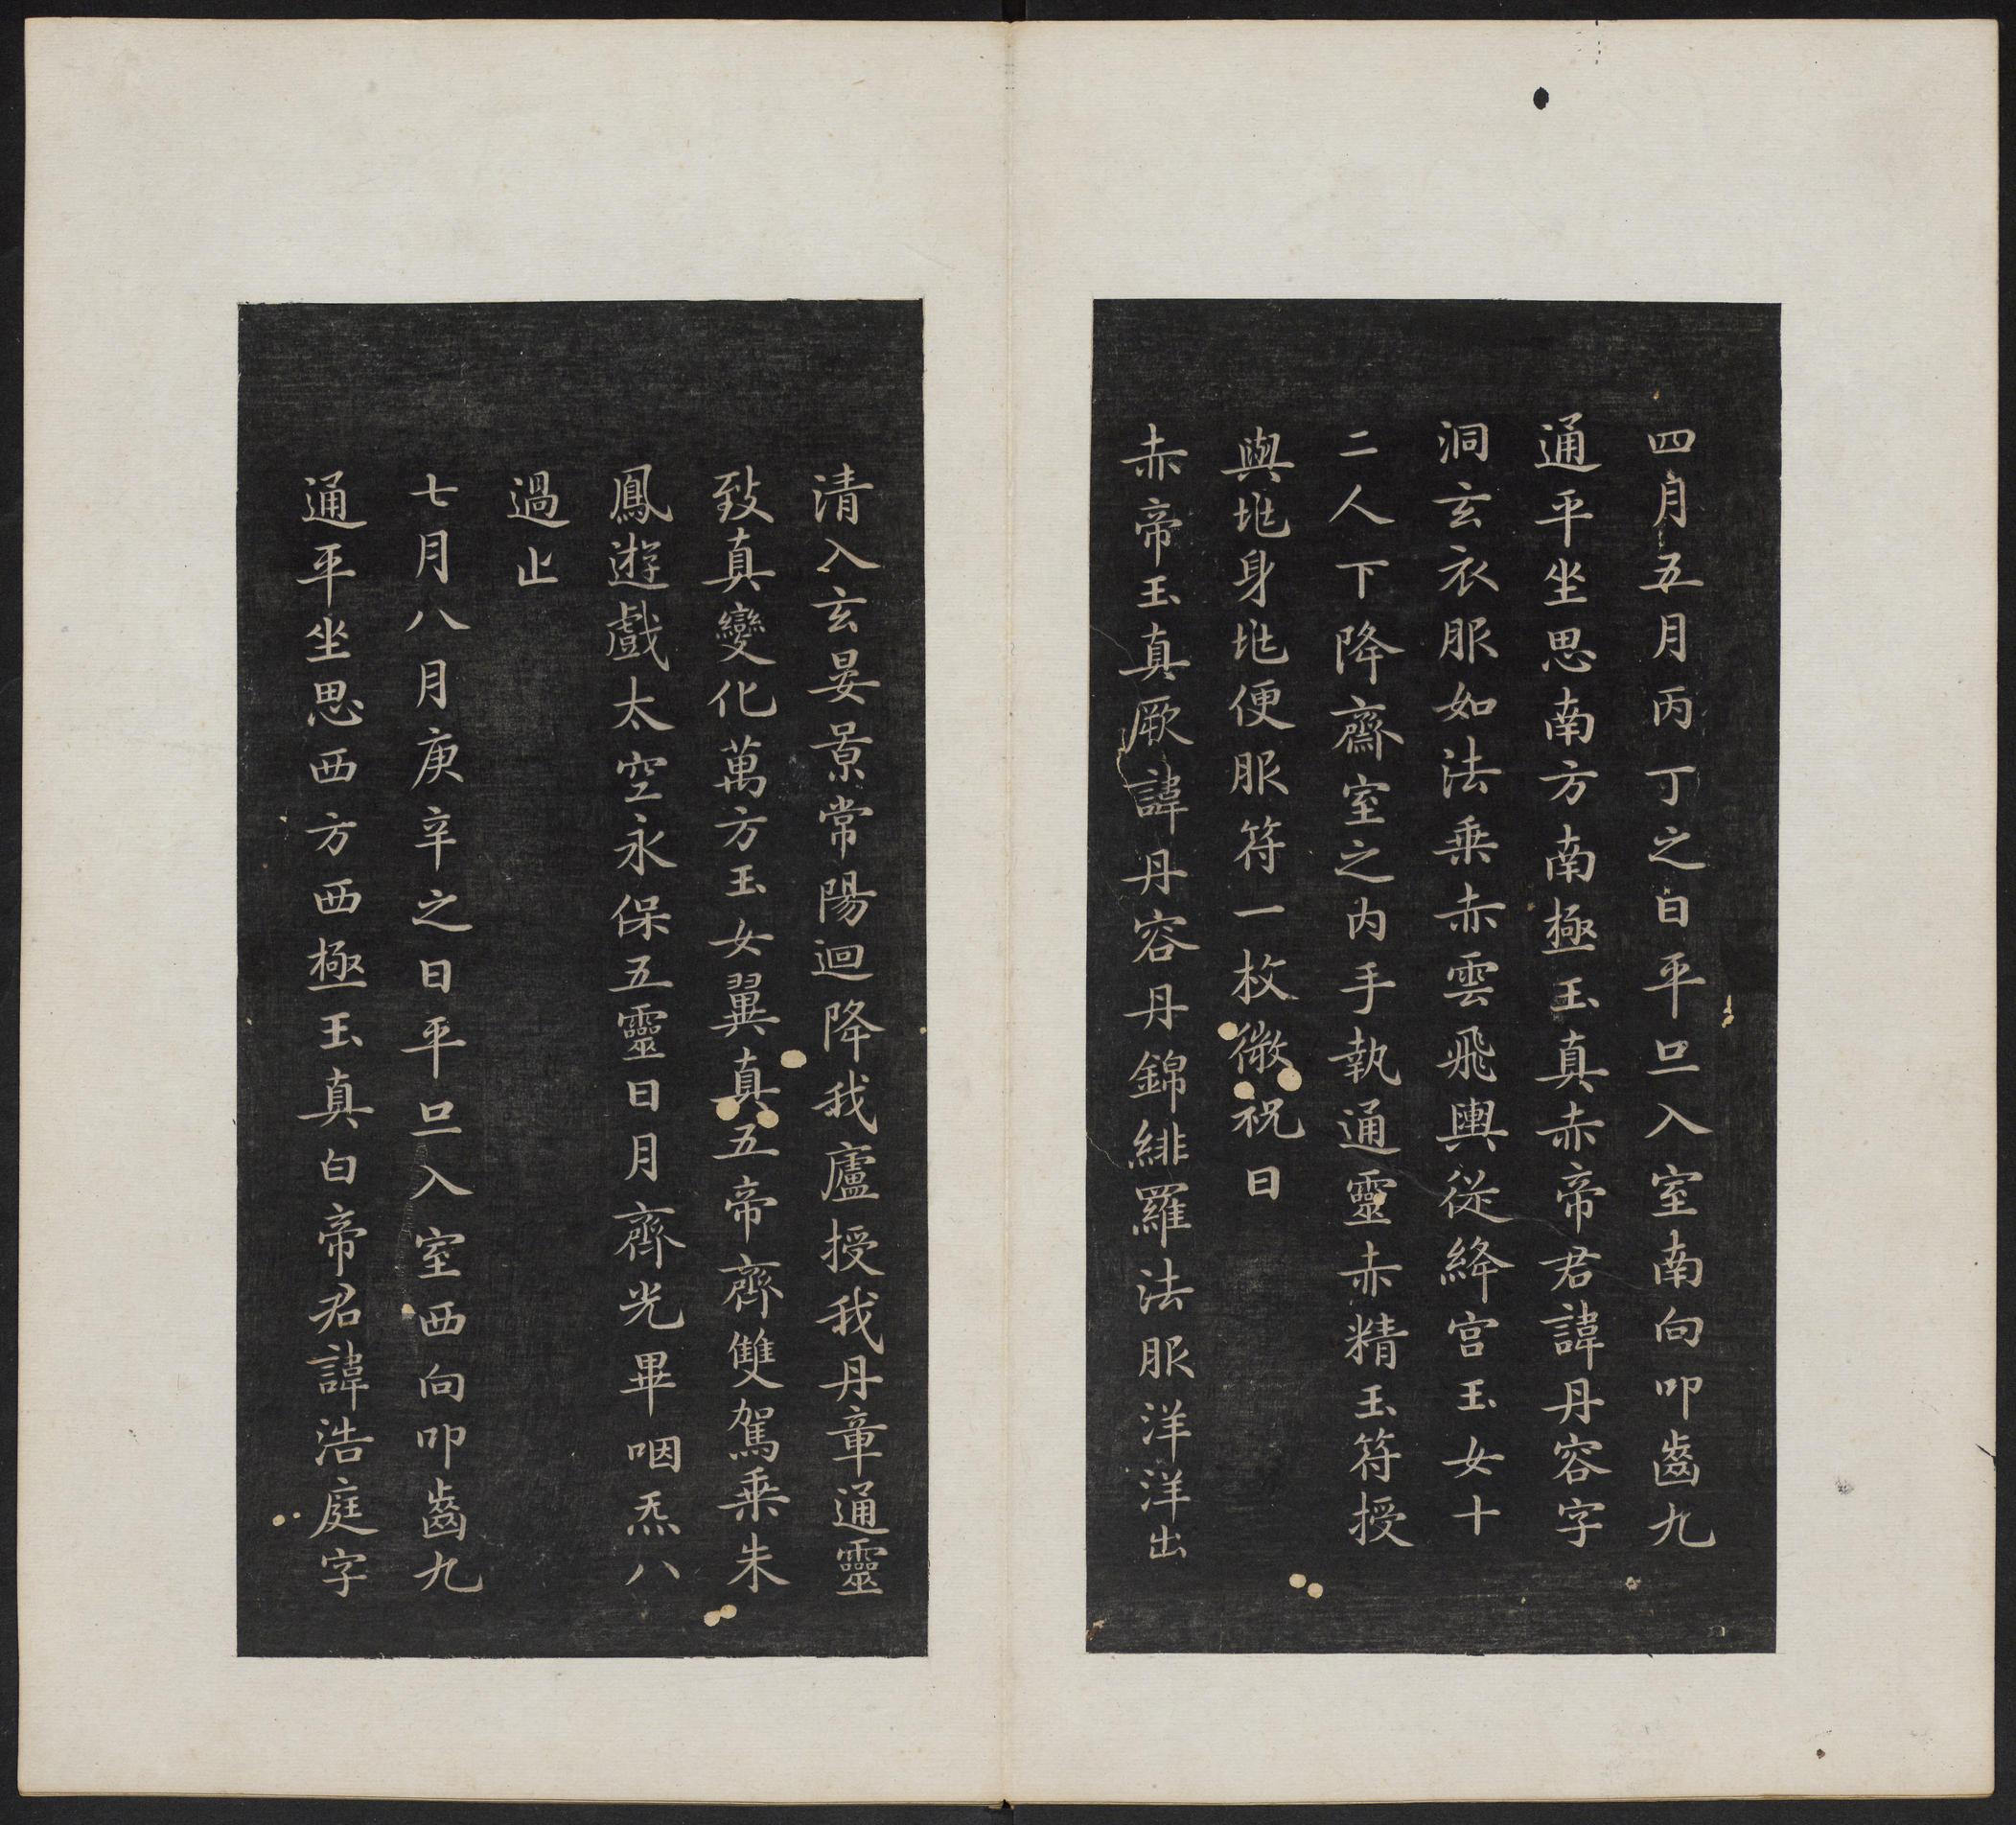 四月五月丙丁之日平旦入室南向叩齒九
通平坐思南方南極玉真赤帝君諱丹容字
洞玄衣服如法乗赤雲飛輿従絳宮玉女十
二人下降齋室之内手執通靈赤精玉符授
與地身地便服符一枚微祝曰
赤帝玉真厥諱丹容丹錦緋羅法服洋洋出
清入玄晏景常陽迴降我廬授我丹章通靈
致真變化萬方玉女翼真五帝齊雙駕乗朱
鳳遊戲太空永保五靈日月齊光畢咽炁八
過止
七月八月庚辛之日平旦入室西向叩齒九
通平坐思西方西極玉真白帝君諱浩庭字